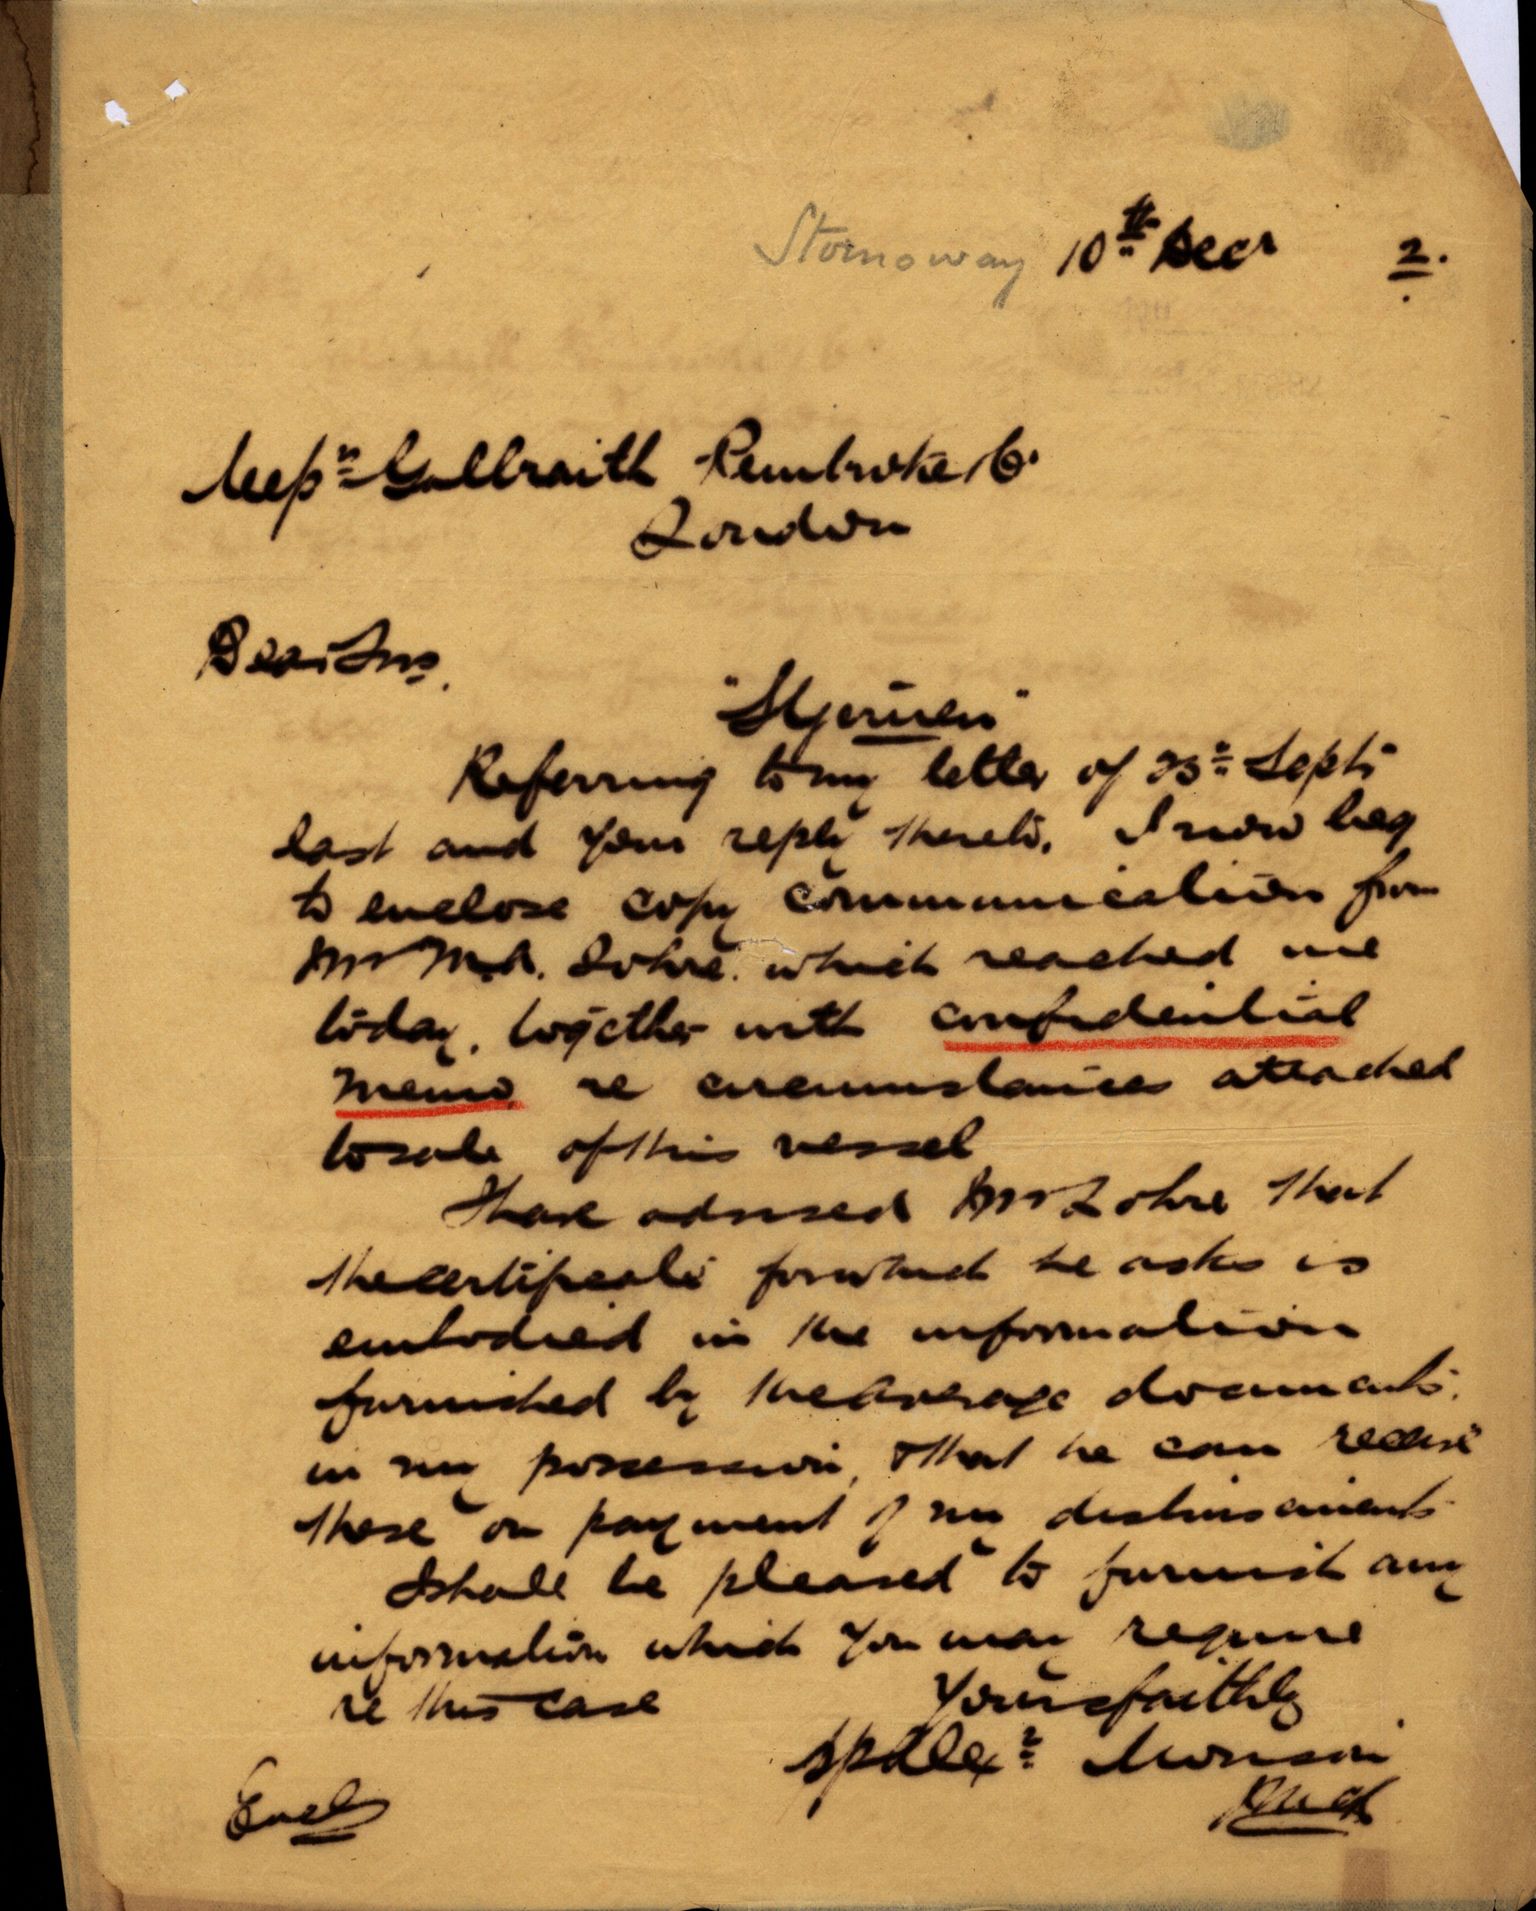 Stornoway 10th Decr 2.
Messrs Galbraith Pembroke & Co.
London
Dear Sirs,
"Stjernen"
Referring to my letter of 23rd Sept
last and your reply thereto, I now beg
to enclose copy communication from
Mr M.A. Lohre. which reached me
today, together with confidential
memo, re circumstances attached
to sale of this vessel
I have advised Mr Lohre that
the certificate for which he asks is
embodied in the information
furnished by the average documents.
in my possession, & that he can receive
these on payment of my disbursements
I shall be pleased to furnish any
information which you may require
re this case
Yours faithfully
pp Alexr Morison
Encl